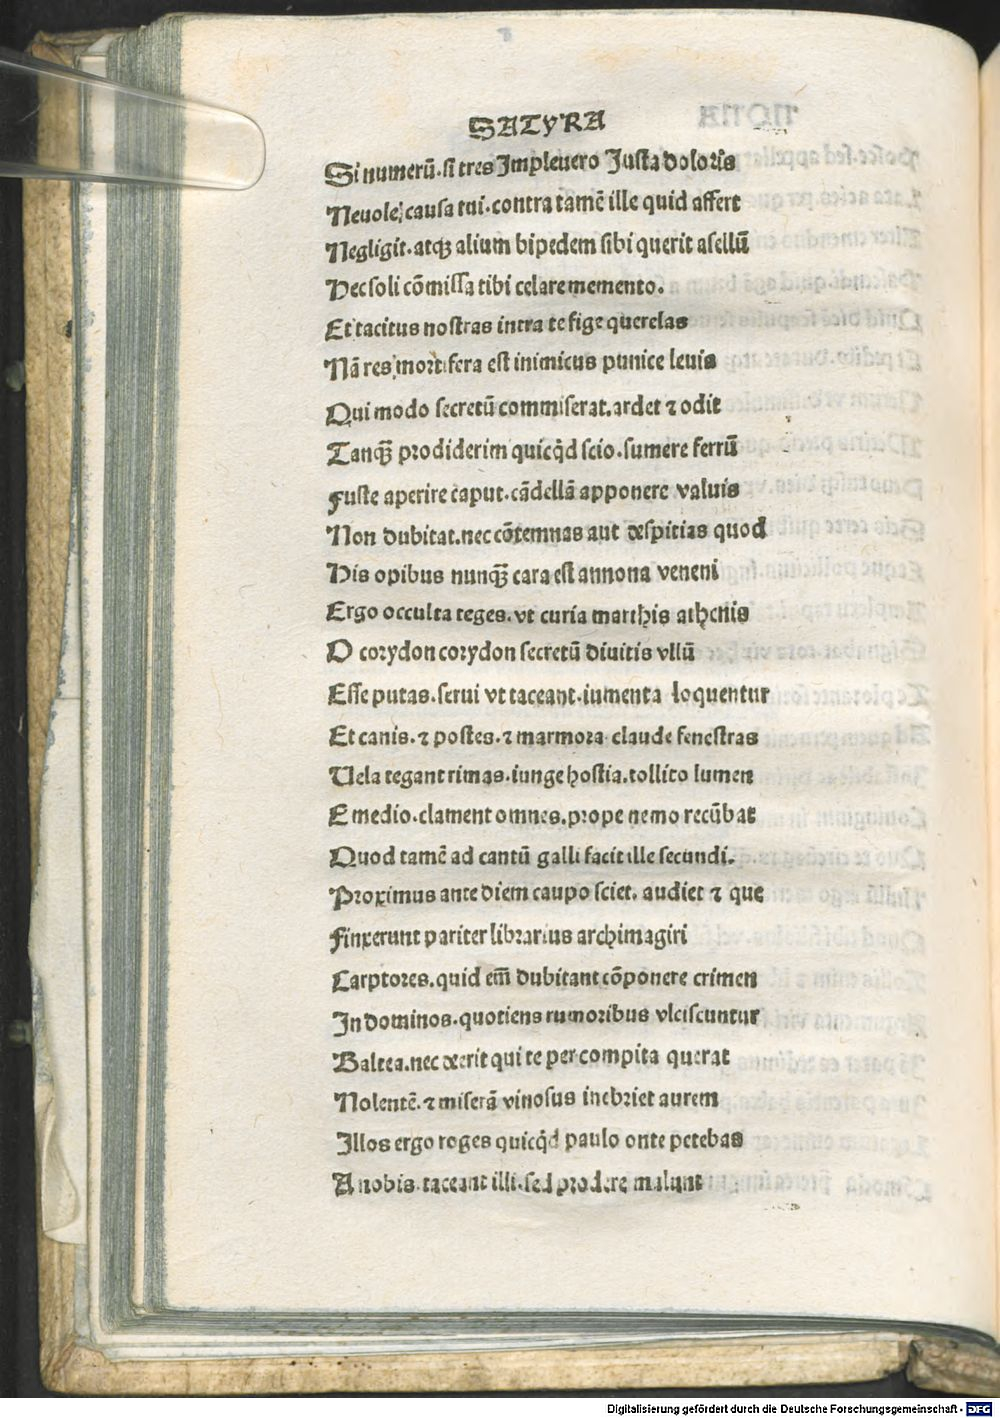 SATYRA
Si numerū. si tres Impleuero Iusta doloris
Neuole, causa tui. contra tamē ille quid affert
Negligit. atqꝫ alium bipedem sibi querit asellū
Hec soli cōmissa tibi celare memento.
Et tacitus nostras intra te fige querelas
Nā res mortifera est inimicus pumice leuis
Qui modo secretū commiserat. ardet ⁊ odit
Tanqꝫ prodiderim quicq̇d scio. sumere ferrū
Fuste aperire caput. cādellā apponere valuis
Non dubitat. nec cōtemnas aut despitias quod
His opibus nunqꝫ cara est annona veneni
Ergo occulta teges. vt curia marthis athenis
O corydon corydon secretū diuitis vllū
Esse putas. serui vt taceant. iumenta loquentur
Et canis. ⁊ postes. ⁊ marmora claude fenestras
Uela tegant rimas. iunge hostia. tollito lumen
E medio. clament omnes. prope nemo recūbat
Quod tamē ad cantū galli facit ille secundi.
Proximus ante diem caupo sciet. audiet ⁊ que
Finxerunt pariter librarius archimagiri
Carptores. quid em̄ dubitant cōponere crimen
In dominos. quotiens rumoribus vlciscuntur
Baltea. nec deerit qui te per compita querat
Nolentē. ⁊ miserā vinosus inebriet aurem
Illos ergo roges quicq̇d paulo onte petebas
A nobis. taceant illi. sed prodere malunt
Digitalisierung gefördert durch die Deutsche Forschungsgemeinschaft - DFG